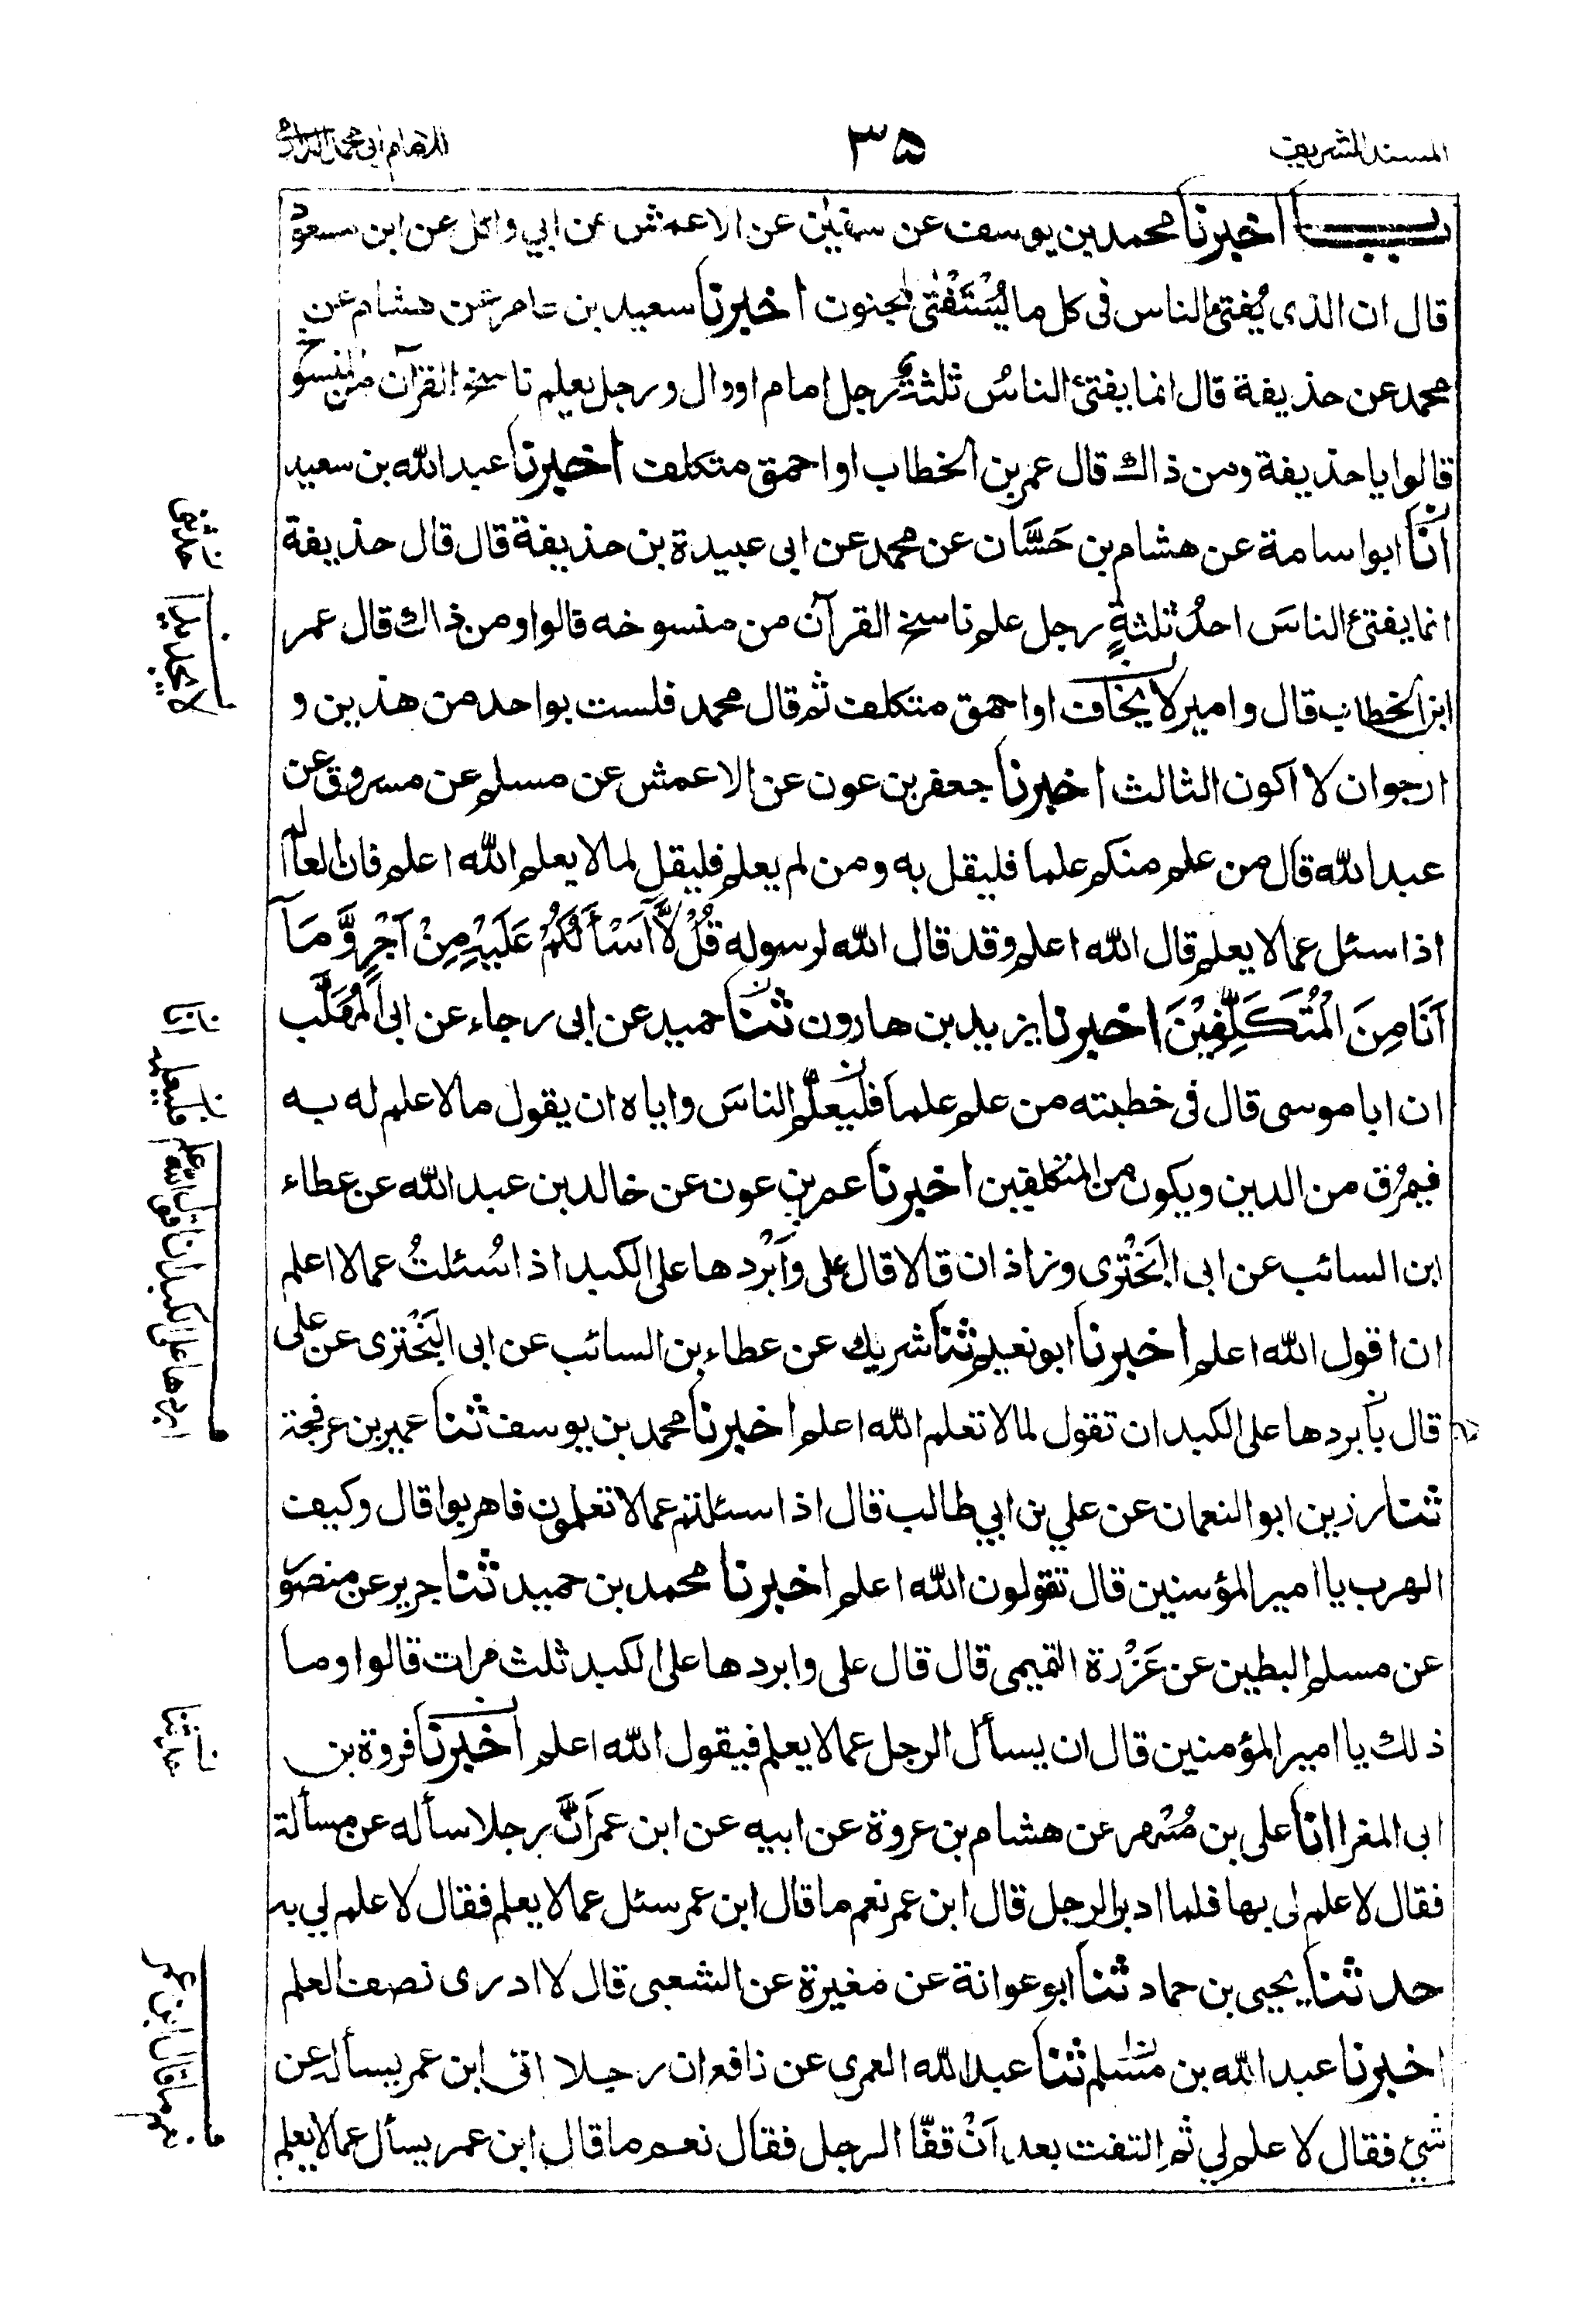 المسند الشريف
٣٥
للامام ابی محمد الدارمی
باب اخبرنا محمد بن يوسف عن سفين عن الاعمش عن ابي وائل عن ابن مسعود
قال ان الذى يُفتى الناس فى كل ما يُسْتَفْتٰى لمجنون اخبرنا سعيد بن عامر عن هشام عن
محمد عن حذيفة قال انما يفتئ الناسُ ثلثةٌ رجل امام او وال و رجل يعلم ناسخ القرآن من المنسوخ
قالوا يا حذيفة ومن ذاك قال عمر بن الخطاب او احمق متكلف اخبرنا عبد الله بن سعيد
انا ابو اسامة عن هشام بن حَسَّان عن محمد عن ابى عبيدة بن حذيفة قال قال حذيفة
انما يفتئ الناسَ احدُ ثلثةٍ رجل علم ناسخ القرآن من منسوخه قالوا ومن ذاك قال عمر
ابن الخطاب قال و امير لا يخاف او احمق متكلف ثم قال محمد فلست بواحد من هذين و
ارجو ان لا اكون الثالث اخبرنا جعفر بن عون عن الاعمش عن مسلم عن مسروق عن
عبد الله قال من علم منكم علما فليقل به ومن لم يعلم فليقل لما لا يعلم الله اعلم فان العالم
اذا سئل عما لا يعلم قال الله اعلم وقد قال الله لرسوله قُلْ لَّا اَسْأَلُكُمْ عَلَيْهِ مِنْ اَجْرٍ وَّ مَآ
اَنَا مِنَ الْمُتَكَلِّفِيْنَ اخبرنا يزيد بن هارون ثنا حميد عن ابى رجاء عن ابى الْمُهَلَّب
ان ابا موسى قال فى خطبته من علم علما فليُعلّم الناسَ واياه ان يقول ما لا علم له به
فيمرُق من الدين ويكون من المتكلفين اخبرنا عمرو بن عون عن خالد بن عبد الله عن عطاء
ابن السائب عن ابى البَخْتَرى وزاذان قالا قال على وَاَبْردها على الكبد اذا سُئلتُ عما لا اعلم
ان اقول الله اعلم اخبرنا ابو نعيم ثنا شريك عن عطاء بن السائب عن ابى البَخْتَرى عن على
قال يا بردها على الكبد ان تقول لما لا تعلم الله اعلم اخبرنا محمد بن يوسف ثنا عمير بن عرفجة
ثنا رزين ابو النعمان عن علي بن ابي طالب قال اذا سئلتم عما لا تعلمون فاهربوا قال وكيف
الهرب يا امير المؤمنين قال تقولون الله اعلم اخبرنا محمد بن حميد ثنا جرير عن منصور
عن مسلم البطين عن عَزْرة التميمى قال قال على وابردها على الكبد ثلث مرات قالوا وما
ذلك يا امير المؤمنين قال ان يسأل الرجل عما لا يعلم فيقول الله اعلم اخبرنا فروة بن
ابى المغرا انا على بن مُسْهر عن هشام بن عروة عن ابيه عن ابن عمر اَنَّ رجلا سأله عن مسألة
فقال لا علم لى بها فلما ادبر الرجل قال ابن عمر نعم ما قال ابن عمر سئل عما لا يعلم فقال لا علم لي به
حدثنا يحيى بن حماد ثنا ابو عوانة عن مغيرة عن الشعبى قال لا ادرى نصف العلم
اخبرنا عبد الله بن مسلم ثنا عبد الله العمرى عن نافع ان رجلا اتى ابن عمر يسأله عن
شئ فقال لا علم لي ثم التفت بعد اَنْ قفّا الرجل فقال نعم ما قال ابن عمر يسأل عما لا يعلم
حدثنى
لا يجد بدا
انا
فليعلمه
حدثنا
نعم ما قال ابن عمر